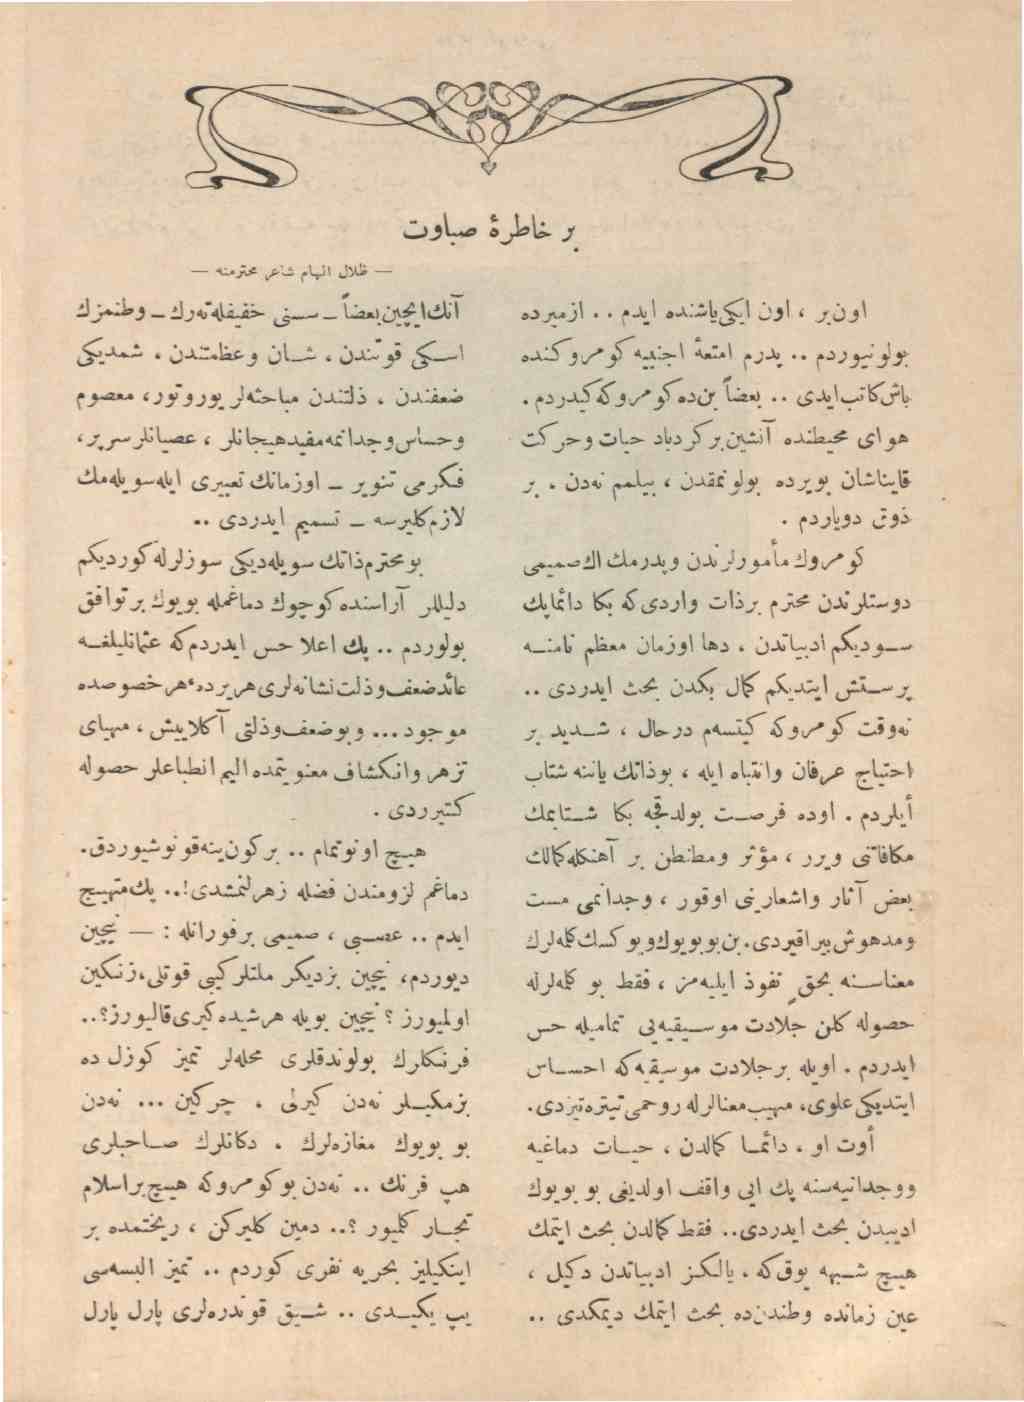 بر خاطرهٔ صباوت
— ظلال الهام شاعر محترمنه —
اون‌بر ، اون ایكی‌یاشنده ایدم . . ازمیرده
بولونیوردم .. پدرم امتعهٔ اجنبیه كومروكنده
باش‌كاتب‌ایدی .. بعضاً بن‌ده‌كومروكه‌كیدردم .
هوای محیطنده آتشین‌بركردباد حیات وحركت
قایناشان بویرده بولونمقدن ، بیلمم نه‌دن . بر
ذوق دویاردم .
كومروك مأمورلرندن وپدرمك اك‌صمیمی
دوستلرندن محترم برذات واردی‌كه بكا دائماپك
سودیكم ادبیاتدن ، دها اوزمان معظم نامنه
پرستش ایتدیكم كمال بكدن بحث ایدردی ..
نه‌وقت كومروكه كیتسه‌م درحال ، شدید بر
احتیاج عرفان وانتباه ایله ، بوذاتك یاننه شتاب
أیلردم . اوده فرصت بولدقجه بكا شتابمك
مكافاتنی ویرر ، مؤثر ومطنطن بر آهنكله‌كمالك
بعض آثار واشعارینی اوقور ، وجدانمی مست
ومدهوش‌بیراقیردی. بن‌بوبویوك‌وبوكسك‌كله‌لرك
معناسنه بحقٍ نفوذ ایلیه‌مز ، فقط بو كله‌لرله
حصوله كلن جلادت موسیقیه‌یی تمامیله حس
ایدردم . اویله برجلادت موسیقیه‌كه احساس
ایتدیكی‌علوی، مهیب‌معنالرله روحمی‌تیتره‌تیردی.
أوت او ، دائما كمالدن ، حیات دماغیه
ووجدانیه‌سنه پك ایی واقف اولدیغی بو بویوك
ادیبدن بحث ایدردی.. فقط كمالدن بحث ایتمك
هیچ شبهه یوق‌كه ، یالكز ادبیاتدن دكیل ،
عین زمانده وطندن‌ده بحث ایتمك دیمكدی ..
آنك‌ایچین‌بعضاً ـ سسنی خفیفله‌ته‌رك ـ وطنمزك
اسكی قوتندن ، شان وعظمتندن ، شمدیكی
ضعفندن ، ذلتندن مباحثه‌لر یوروتور، معصوم
وحساس‌وجدانمه‌مفیدهیجانلر ، عصیانلرسرپر،
فكرمی تنویر ـ اوزمانك تعبیری ایله‌سویله‌مك
لازم‌كلیرسه ـ تسمیم ایدردی ..
بومحترم‌ذاتك سویله‌دیكی سوزلرله‌كوردیكم
دلیللر آراسنده‌كوچوك دماغمله بویوك برتوافق
بولوردم .. پك اعلا حس ایدردم‌كه عثمانلیلغه
عائدضعف‌وذلت‌نشانه‌لری‌هریرده‌،هرخصوصده
موجود ... وبوضعف‌وذلتی آكلاییش ، مهیای
تزهر وانكشاف معنویتمده الیم انطباعلر حصوله
كتیرردی .
هیچ اونوتمام .. بركون‌ینه‌قونوشیوردق.
دماغم لزومندن فضله زهرلنمشدی!.. پك‌متهیج
ایدم .. عصبی ، صمیمی برفورانله : — نیچین
دیوردم، نیچین بزدیكر ملتلركبی قوتلی،زنكین
اولمیورز ؟ نیچین بویله هرشیده‌كیری‌قالیورز؟..
فرنكلرك بولوندقلری محله‌لر تمیز كوزل ده
بزمكیلر نه‌دن كیرلی ، چركین ... نه‌دن
بو بویوك مغازه‌لرك ، دكانلرك صاحبلری
هپ فرنك .. نه‌دن بوكومروكه هیچ‌براسلام
تجار كلمیور ؟.. دمین كلیركن ، ریختمده بر
اینكیلیز بحریه نفری كوردم .. تمیز البسه‌سی
یپ یكیدی .. شیق قوندره‌لری پارل پارل